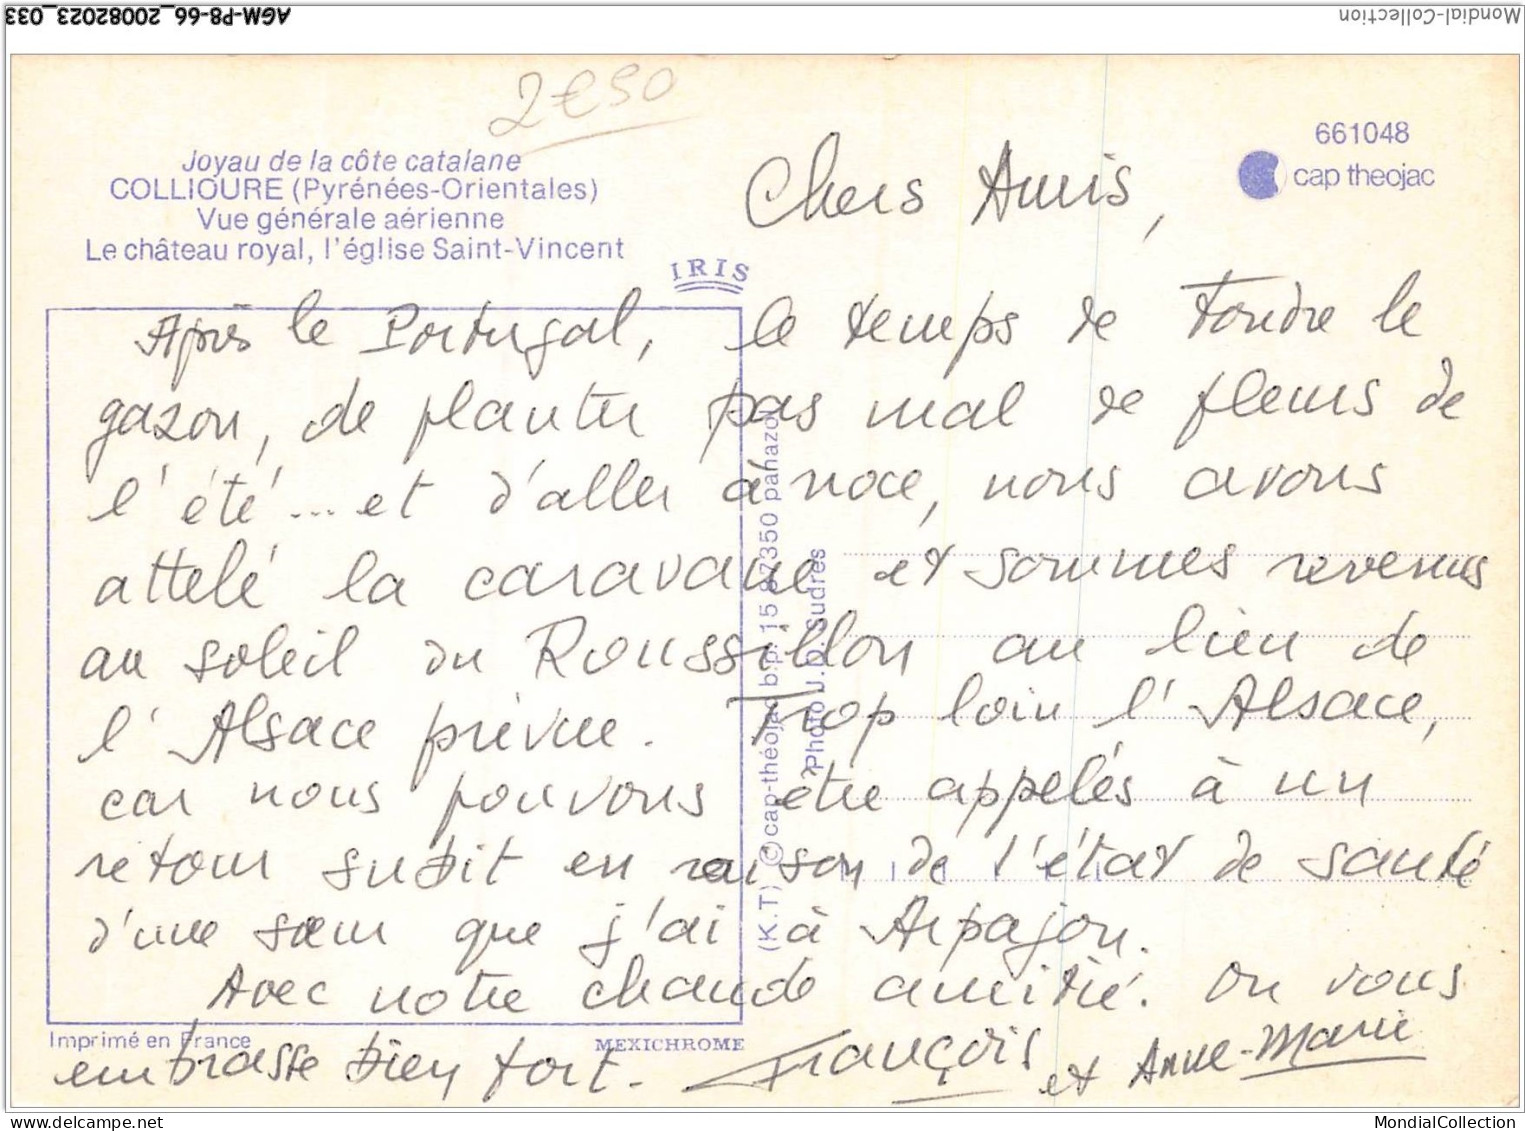 AGM-P8-66_20082023_033
Mondial-Collection
2€50
Joyau de la côte catalane
COLLIOURE (Pyrénées-Orientales)
Vue générale aérienne
Le château royal, l'église Saint-Vincent
IRIS
661048
cap theojac
Chers Amis,
Après le Portugal, le temps de tondre le
gazon, de planter pas mal de fleurs de
l'été... et d'aller à noce, nous avons
attelé la caravane et sommes revenus
au soleil du Roussillon au lieu de
l'Alsace prévue. Trop loin l'Alsace,
car nous pouvons être appelés à un
retour subit en raison de l'état de santé
d'une sœur que j'ai à Arpajon.
Avec notre chaude amitié. On vous
embrasse bien fort. François et Anne-Marie
(K.T) © cap-théojac b.p. 15 87350 panazol
Photo J.D. Sudres
Imprimé en France
MEXICHROME
delcampe.net
MondialCollection